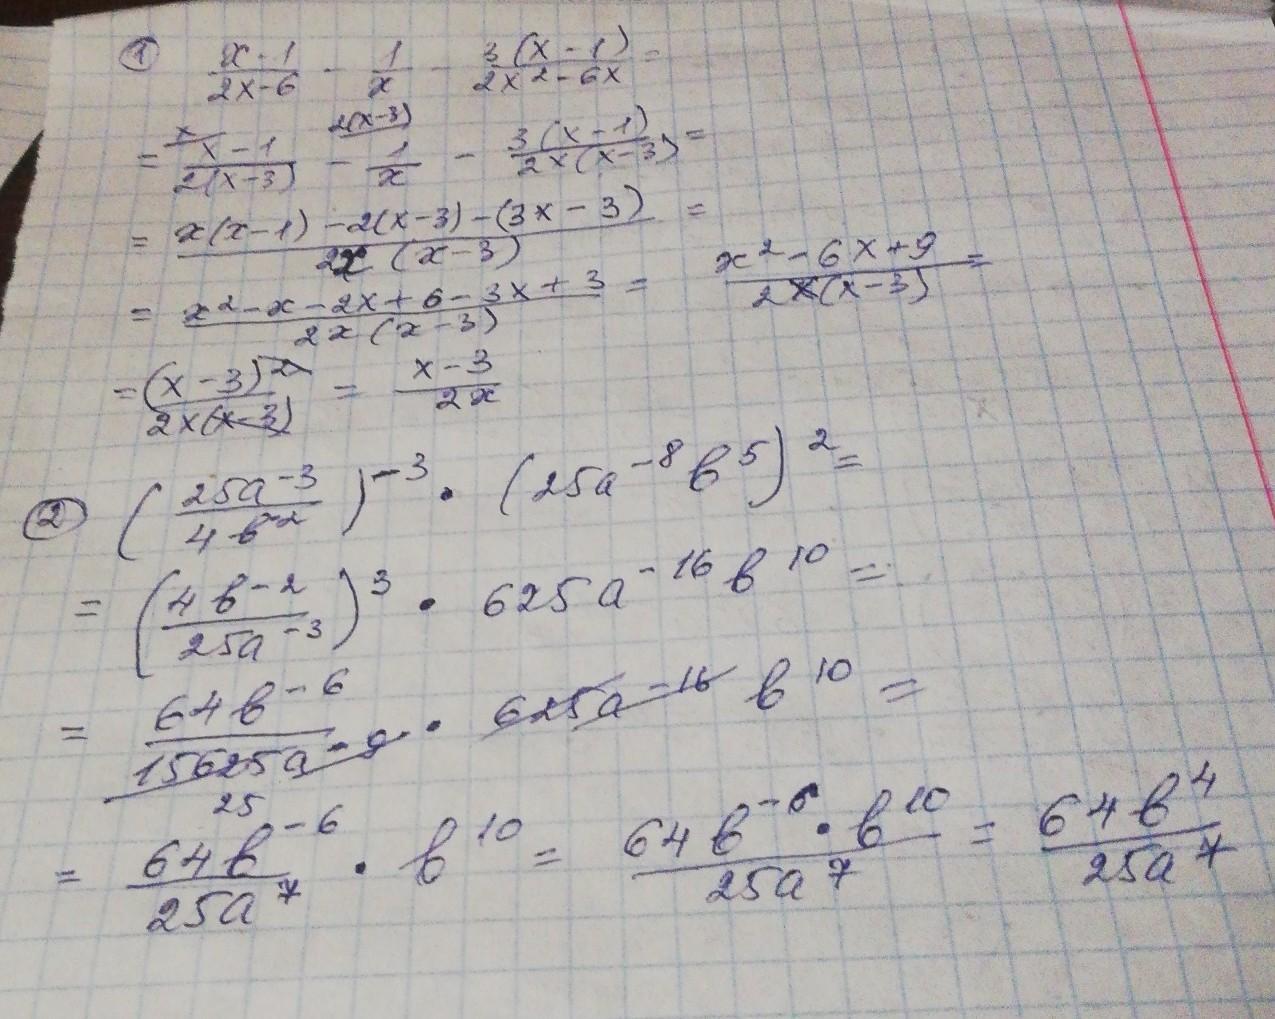 ① (x-1)/(2x-6) - 1/x - 3(x-1)/(2x²-6x) =
= x (x-1)/(2(x-3)) - 2(x-3) 1/x - 3(x-1)/(2x(x-3)) =
= (x(x-1)-2(x-3)-(3x-3))/(2x(x-3)) =
= (x²-x-2x+6-3x+3)/(2x(x-3)) = (x²-6x+9)/(2x(x-3)) =
= (x-3)²/(2x(x-3)) = (x-3)/(2x)
② (25a⁻³/(4b⁻²))⁻³ · (25a⁻⁸b⁵)² =
= (4b⁻²/(25a⁻³))³ · 625a⁻¹⁶b¹⁰ =
= 64b⁻⁶/(15625a⁻⁹) · 625a⁻¹⁶ b¹⁰ =
25
= 64b⁻⁶/(25a⁷) · b¹⁰ = (64b⁻⁶·b¹⁰)/(25a⁷) = 64b⁴/(25a⁷)